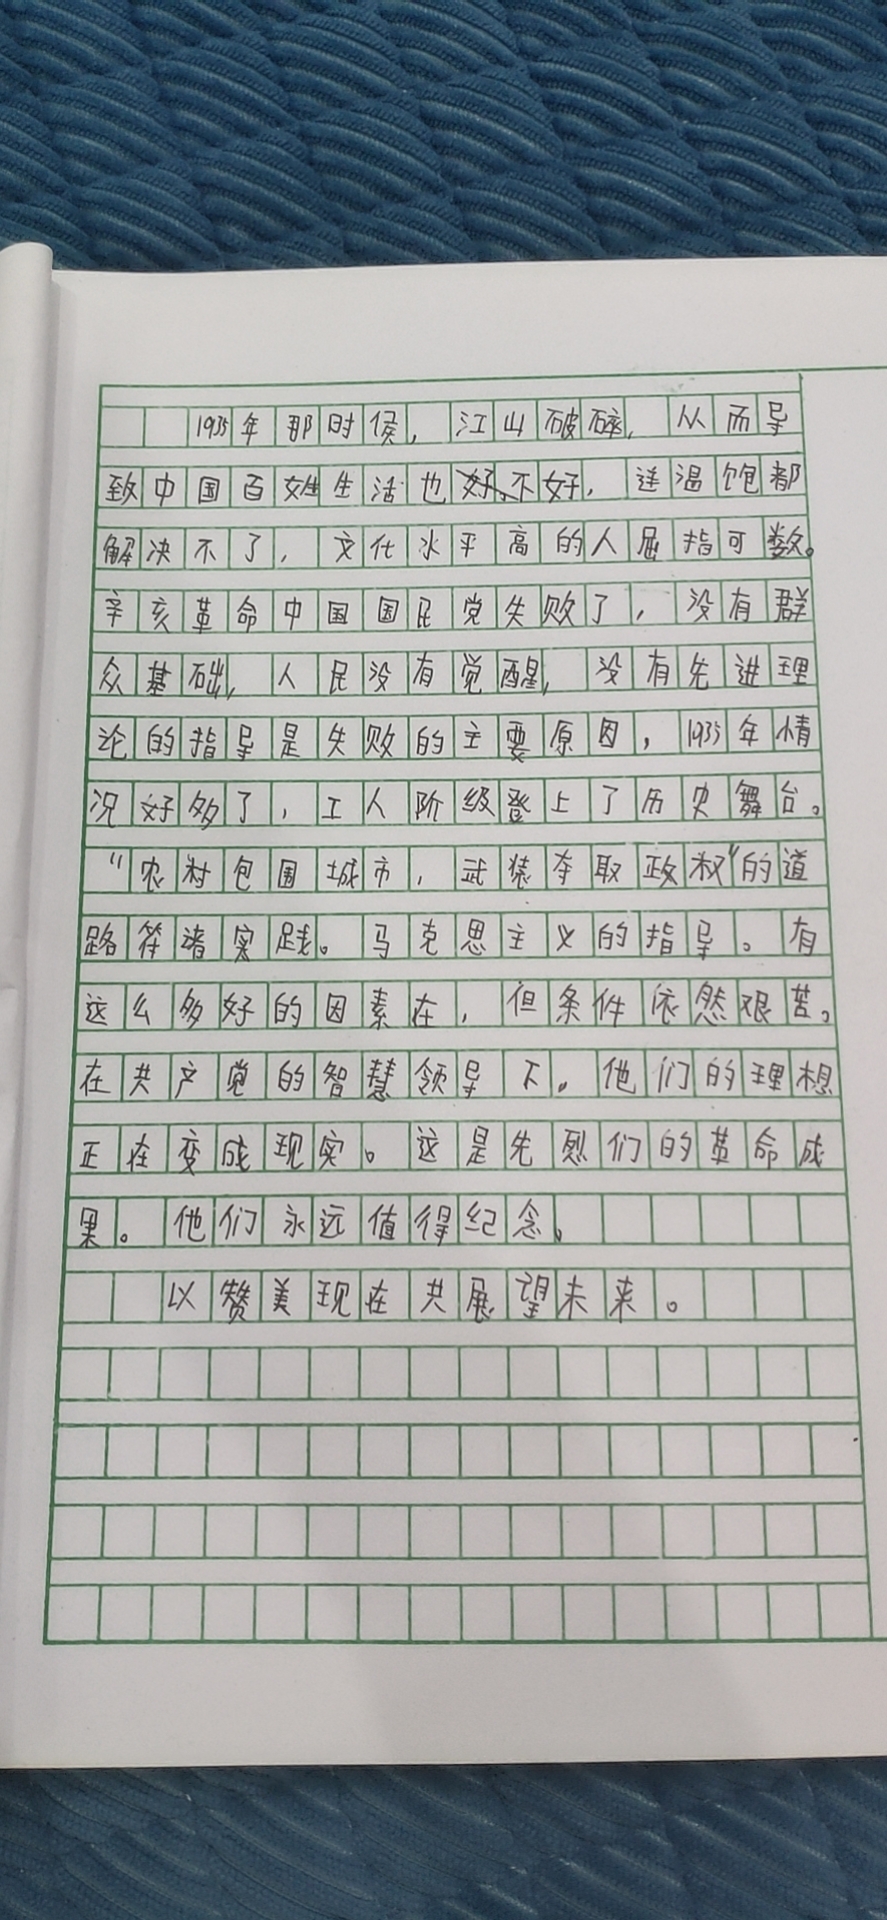 1935年那时侯，江山破碎，从而导
致中国百姓生活也不好，连温饱都
解决不了，文化水平高的人屈指可数。
辛亥革命中国国民党失败了，没有群
众基础，人民没有觉醒，没有先进理
论的指导是失败的主要原因，1935年情
况好多了，工人阶级登上了历史舞台。
“农村包围城市，武装夺取政权”的道
路符诸实践。马克思主义的指导。有
这么多好的因素在，但条件依然艰苦。
在共产党的智慧领导下。他们的理想
正在变成现实。这是先烈们的革命成
果。他们永远值得纪念。
以赞美现在共展望未来。